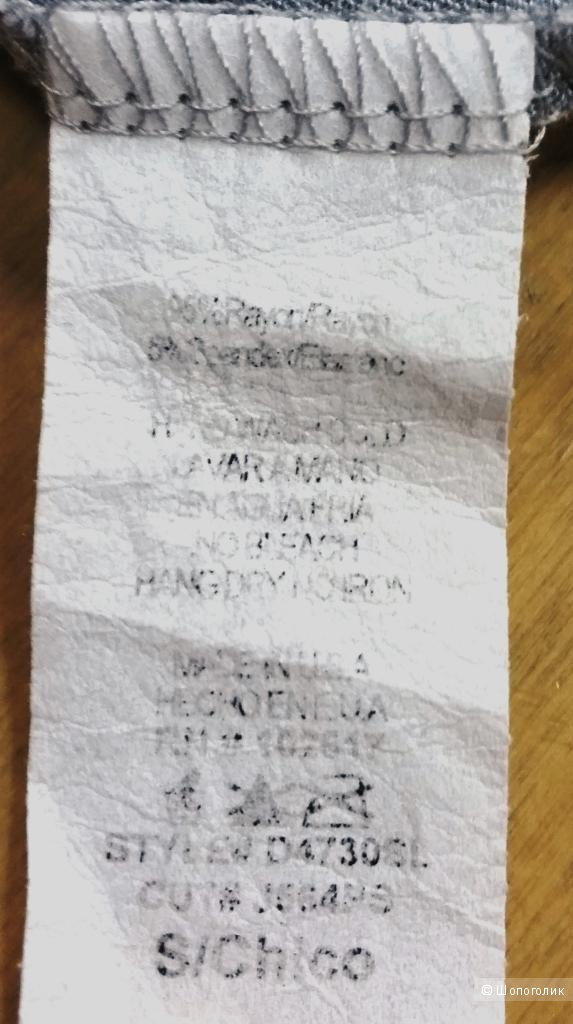 Rayon/Rayon
5% Spandex/Elastano
HAND WASH COLD
LAVAR A MANO
EN AGUA FRIA
NO BLEACH
HANG DRY NO IRON
MADE IN U.S.A
HECHO EN E.U.A
RN #
STYLE# D4730SL
CUT#
S/Chico
© Шопоголик